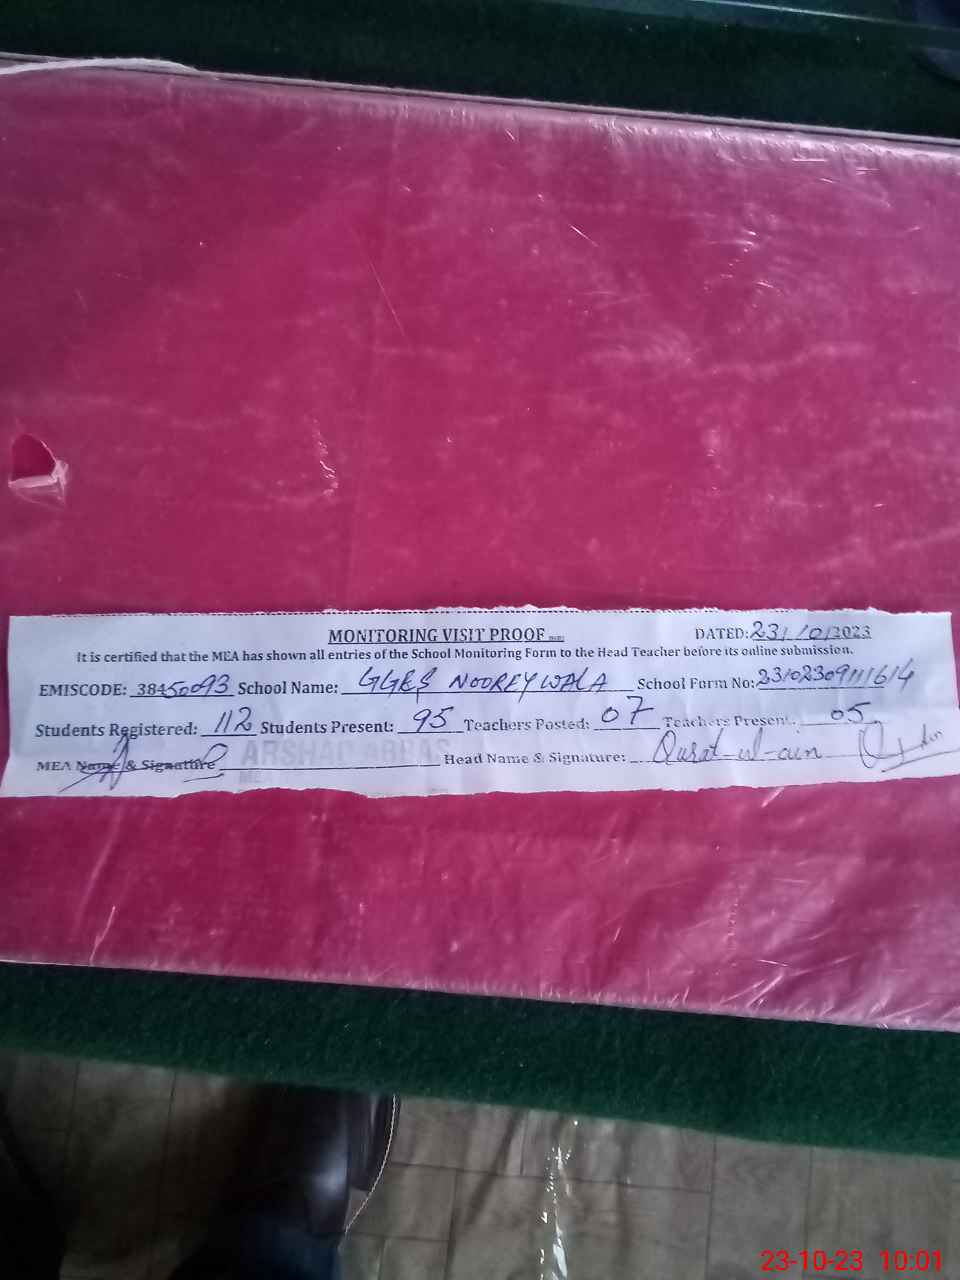 MONITORING VISIT PROOF DATED: 23/10/2023
It is certified that the MEA has shown all entries of the School Monitoring Form to the Head Teacher before its online submission.
EMISCODE: 38450093 School Name: GGES NOOREYWALA School Form No: 23102309111614
Students Registered: 112 Students Present: 95 Teachers Posted: 07 Teachers Present: 05
MEA Name & Signature: ARSHAD ABBAS Head Name & Signature: Qurat-ul-ain
MEA
23-10-23 10:01